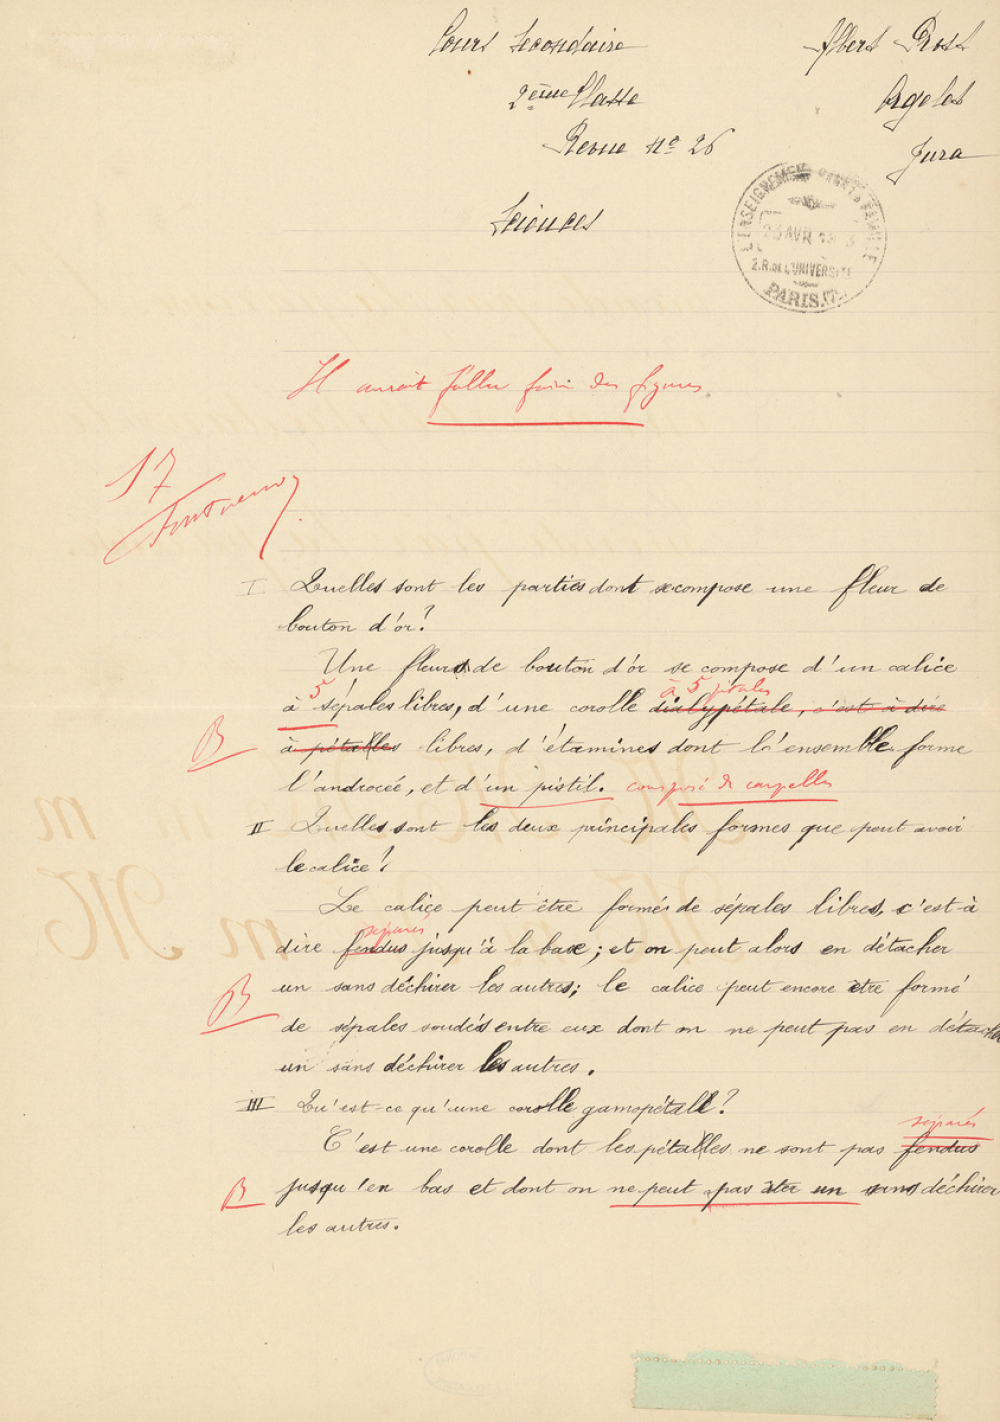 Cours Secondaire
Albert Prost
2ème Classe
Orgelet
Revue nº 26
Jura
Sciences
L'ENSEIGNEMENT DANS LA FAMILLE
AVR
2.R. DE L'UNIVERSITÉ
PARIS.(7e)
Il aurait fallu faire des figures.
17
I Quelles sont les parties dont se compose une fleur de
bouton d'or?
Une fleur de bouton d'or se compose d'un calice
5 à 5 pétales
à sépales libres, d'une corolle dialypétale, c'est à dire
B à pétalles libres, d'étamines dont l'ensemble forme
l'androcée, et d'un pistil. composé de carpelles
II Quelles sont les deux principales formes que peut avoir
le calice?
Le calice peut être formé de sépales libres, c'est-à
séparés
dire fendus jusqu'à la base; et on peut alors en détacher
B un sans déchirer les autres; le calice peut encore être formé
de sépales soudés entre eux dont on ne peut pas en détacher
un sans déchirer les autres.
III Qu'est-ce qu'une corolle gamopétale?
séparés
C'est une corolle dont les pétalles ne sont pas fendus
B jusqu'en bas et dont on ne peut pas ôter un sans déchirer
les autres.